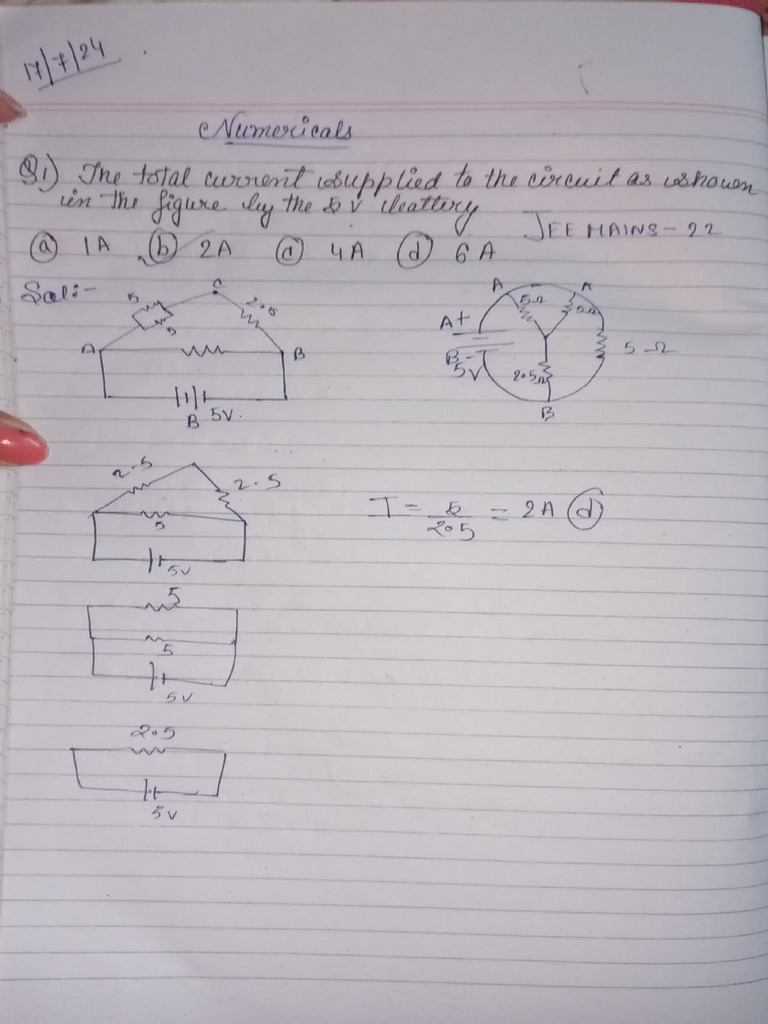 17/7/24
Numericals
Q1) The total current supplied to the circuit as shown
in the figure by the 5 V battery
JEE MAINS - 22
(a) 1A (b) 2A (c) 4A (d) 6A
Sol:-
5 5 C 2.5
A B
B 5V.
A A
5Ω 5Ω
A+
B-
5V
5Ω
2.5Ω
B
2.5 2.5
5
5V
I = 5/2.5 = 2A (d)
5
5
5V
2.5
5V